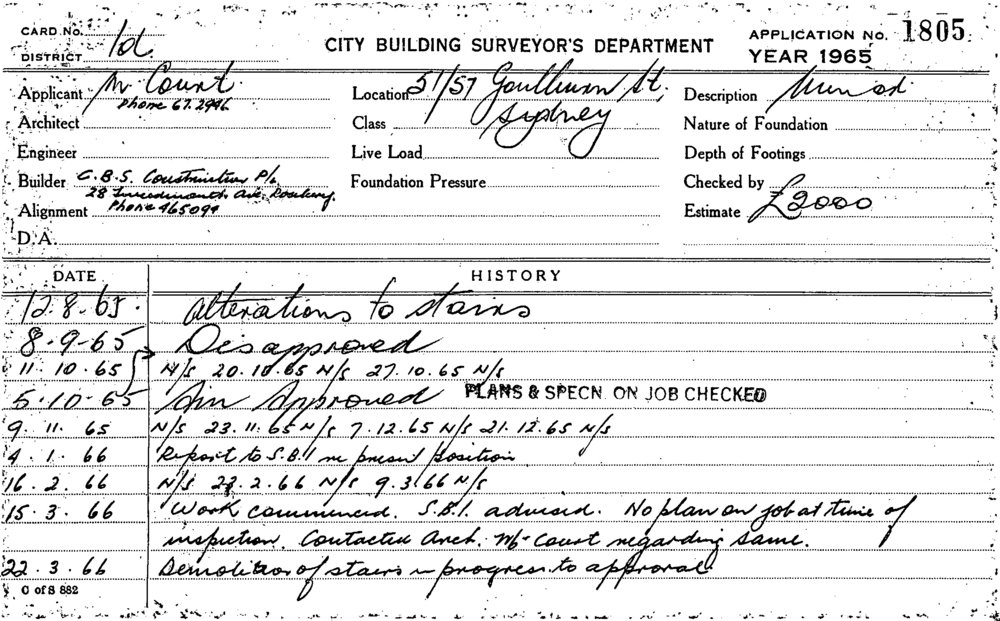 CARD No.
DISTRICT 1d.
CITY BUILDING SURVEYOR'S DEPARTMENT
APPLICATION No. 1805
YEAR 1965
Applicant Mc Court
Phone 67.2946
Location 51/57 Goulburn St,
Sydney
Description
Architect
Class
Nature of Foundation
Engineer
Live Load
Depth of Footings
Builder C.B.S. Construction P/L
28 Ave.
Phone 465099
Foundation Pressure
Checked by
Alignment
Estimate £2000
D.A.
DATE HISTORY
12.8.65. Alterations to stairs
8-9-65 Disapproved
11.10.65 N/S 20.10.65 N/S 27.10.65 N/S
5.10-65 Approved PLANS & SPECN. ON JOB CHECKED
9.11.65 N/S 23.11.65 N/S 7.12.65 N/S 21.12.65 N/S
4.1.66 Report to S.B.I re present position
16.2.66 N/S 23.2.66 N/S 9.3.66 N/S
15.3.66 Work commenced. S.B.I. advised. No plan on job at time of
inspection. Contacted Arch. Mc Court regarding same.
22.3.66 Demolition of stairs in progress to approval
C of S 882